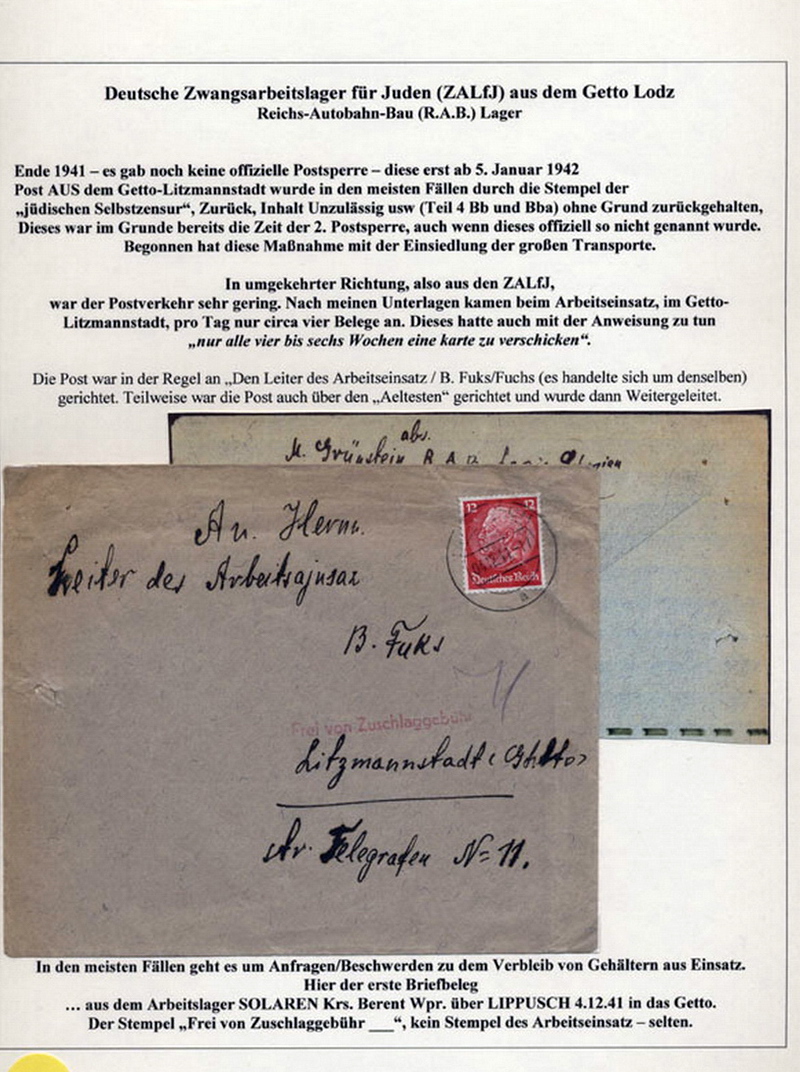 Deutsche Zwangsarbeitslager für Juden (ZALfJ) aus dem Getto Lodz
Reichs-Autobahn-Bau (R.A.B.) Lager
Ende 1941 – es gab noch keine offizielle Postsperre – diese erst ab 5. Januar 1942
Post AUS dem Getto-Litzmannstadt wurde in den meisten Fällen durch die Stempel der
„jüdischen Selbstzensur“, Zurück, Inhalt Unzulässig usw (Teil 4 Bb und Bba) ohne Grund zurückgehalten,
Dieses war im Grunde bereits die Zeit der 2. Postsperre, auch wenn dieses offiziell so nicht genannt wurde.
Begonnen hat diese Maßnahme mit der Einsiedlung der großen Transporte.
In umgekehrter Richtung, also aus den ZALfJ,
war der Postverkehr sehr gering. Nach meinen Unterlagen kamen beim Arbeitseinsatz, im Getto-
Litzmannstadt, pro Tag nur circa vier Belege an. Dieses hatte auch mit der Anweisung zu tun
„nur alle vier bis sechs Wochen eine karte zu verschicken“.
Die Post war in der Regel an „Den Leiter des Arbeitseinsatz / B. Fuks/Fuchs (es handelte sich um denselben)
gerichtet. Teilweise war die Post auch über den „Aeltesten“ gerichtet und wurde dann Weitergeleitet.
abs.
M. Grünstein R.A.B.
An. Herrn.
Leiter des Arbeitsajnsaz
12 12
Deutsches Reich
B. Fuks
Frei von Zuschlaggebühr
Litzmannstadt (Ghetto)
Telegrafen N= 11.
In den meisten Fällen geht es um Anfragen/Beschwerden zu dem Verbleib von Gehältern aus Einsatz.
Hier der erste Briefbeleg
… aus dem Arbeitslager SOLAREN Krs. Berent Wpr. über LIPPUSCH 4.12.41 in das Getto.
Der Stempel „Frei von Zuschlaggebühr ___“, kein Stempel des Arbeitseinsatz – selten.